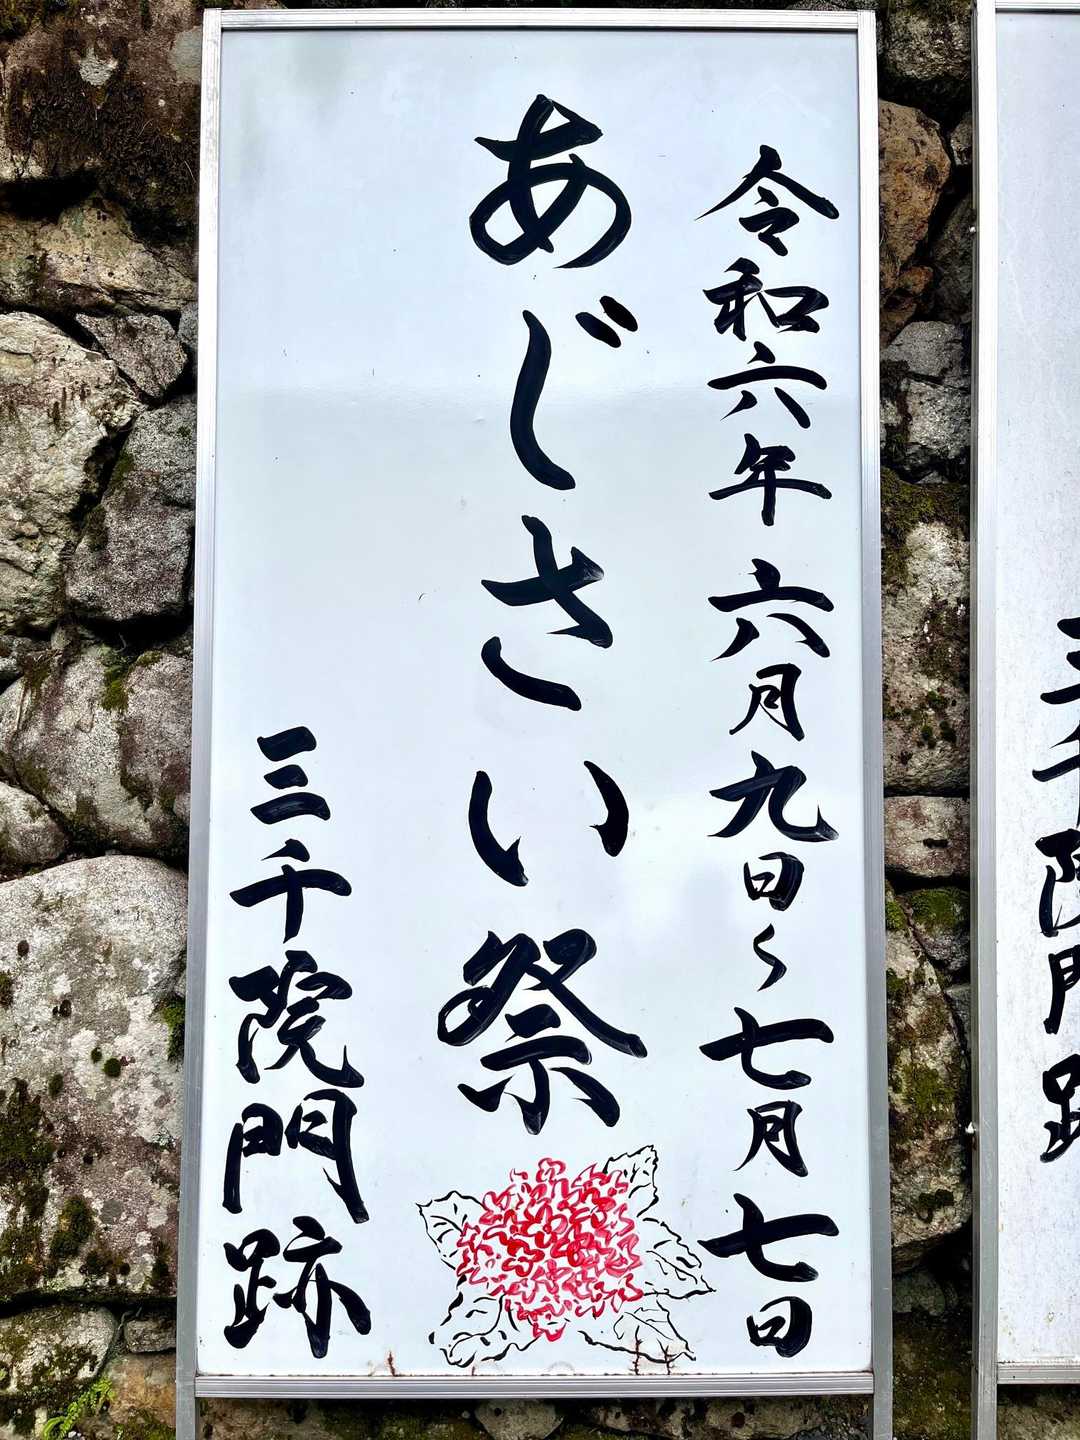 令和六年 六月九日〜七月七日
あじさい祭
三千院門跡
三千院門跡